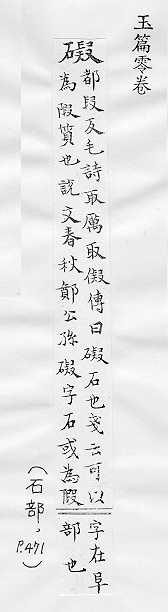 玉篇零卷
碫
都段反毛詩取厲取傳曰碫石也箋云可以
為質也說文春秋鄭公孫碫字石或為
字在阜
部也
（石部，
P.471）